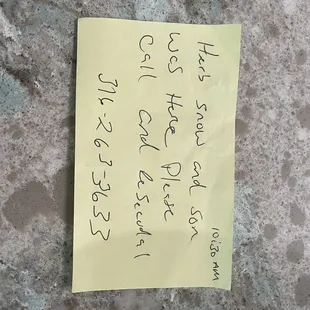 10:30 AM
Herb Snow and Son
was Here Please
Call and ReSecudal
316-263-3633